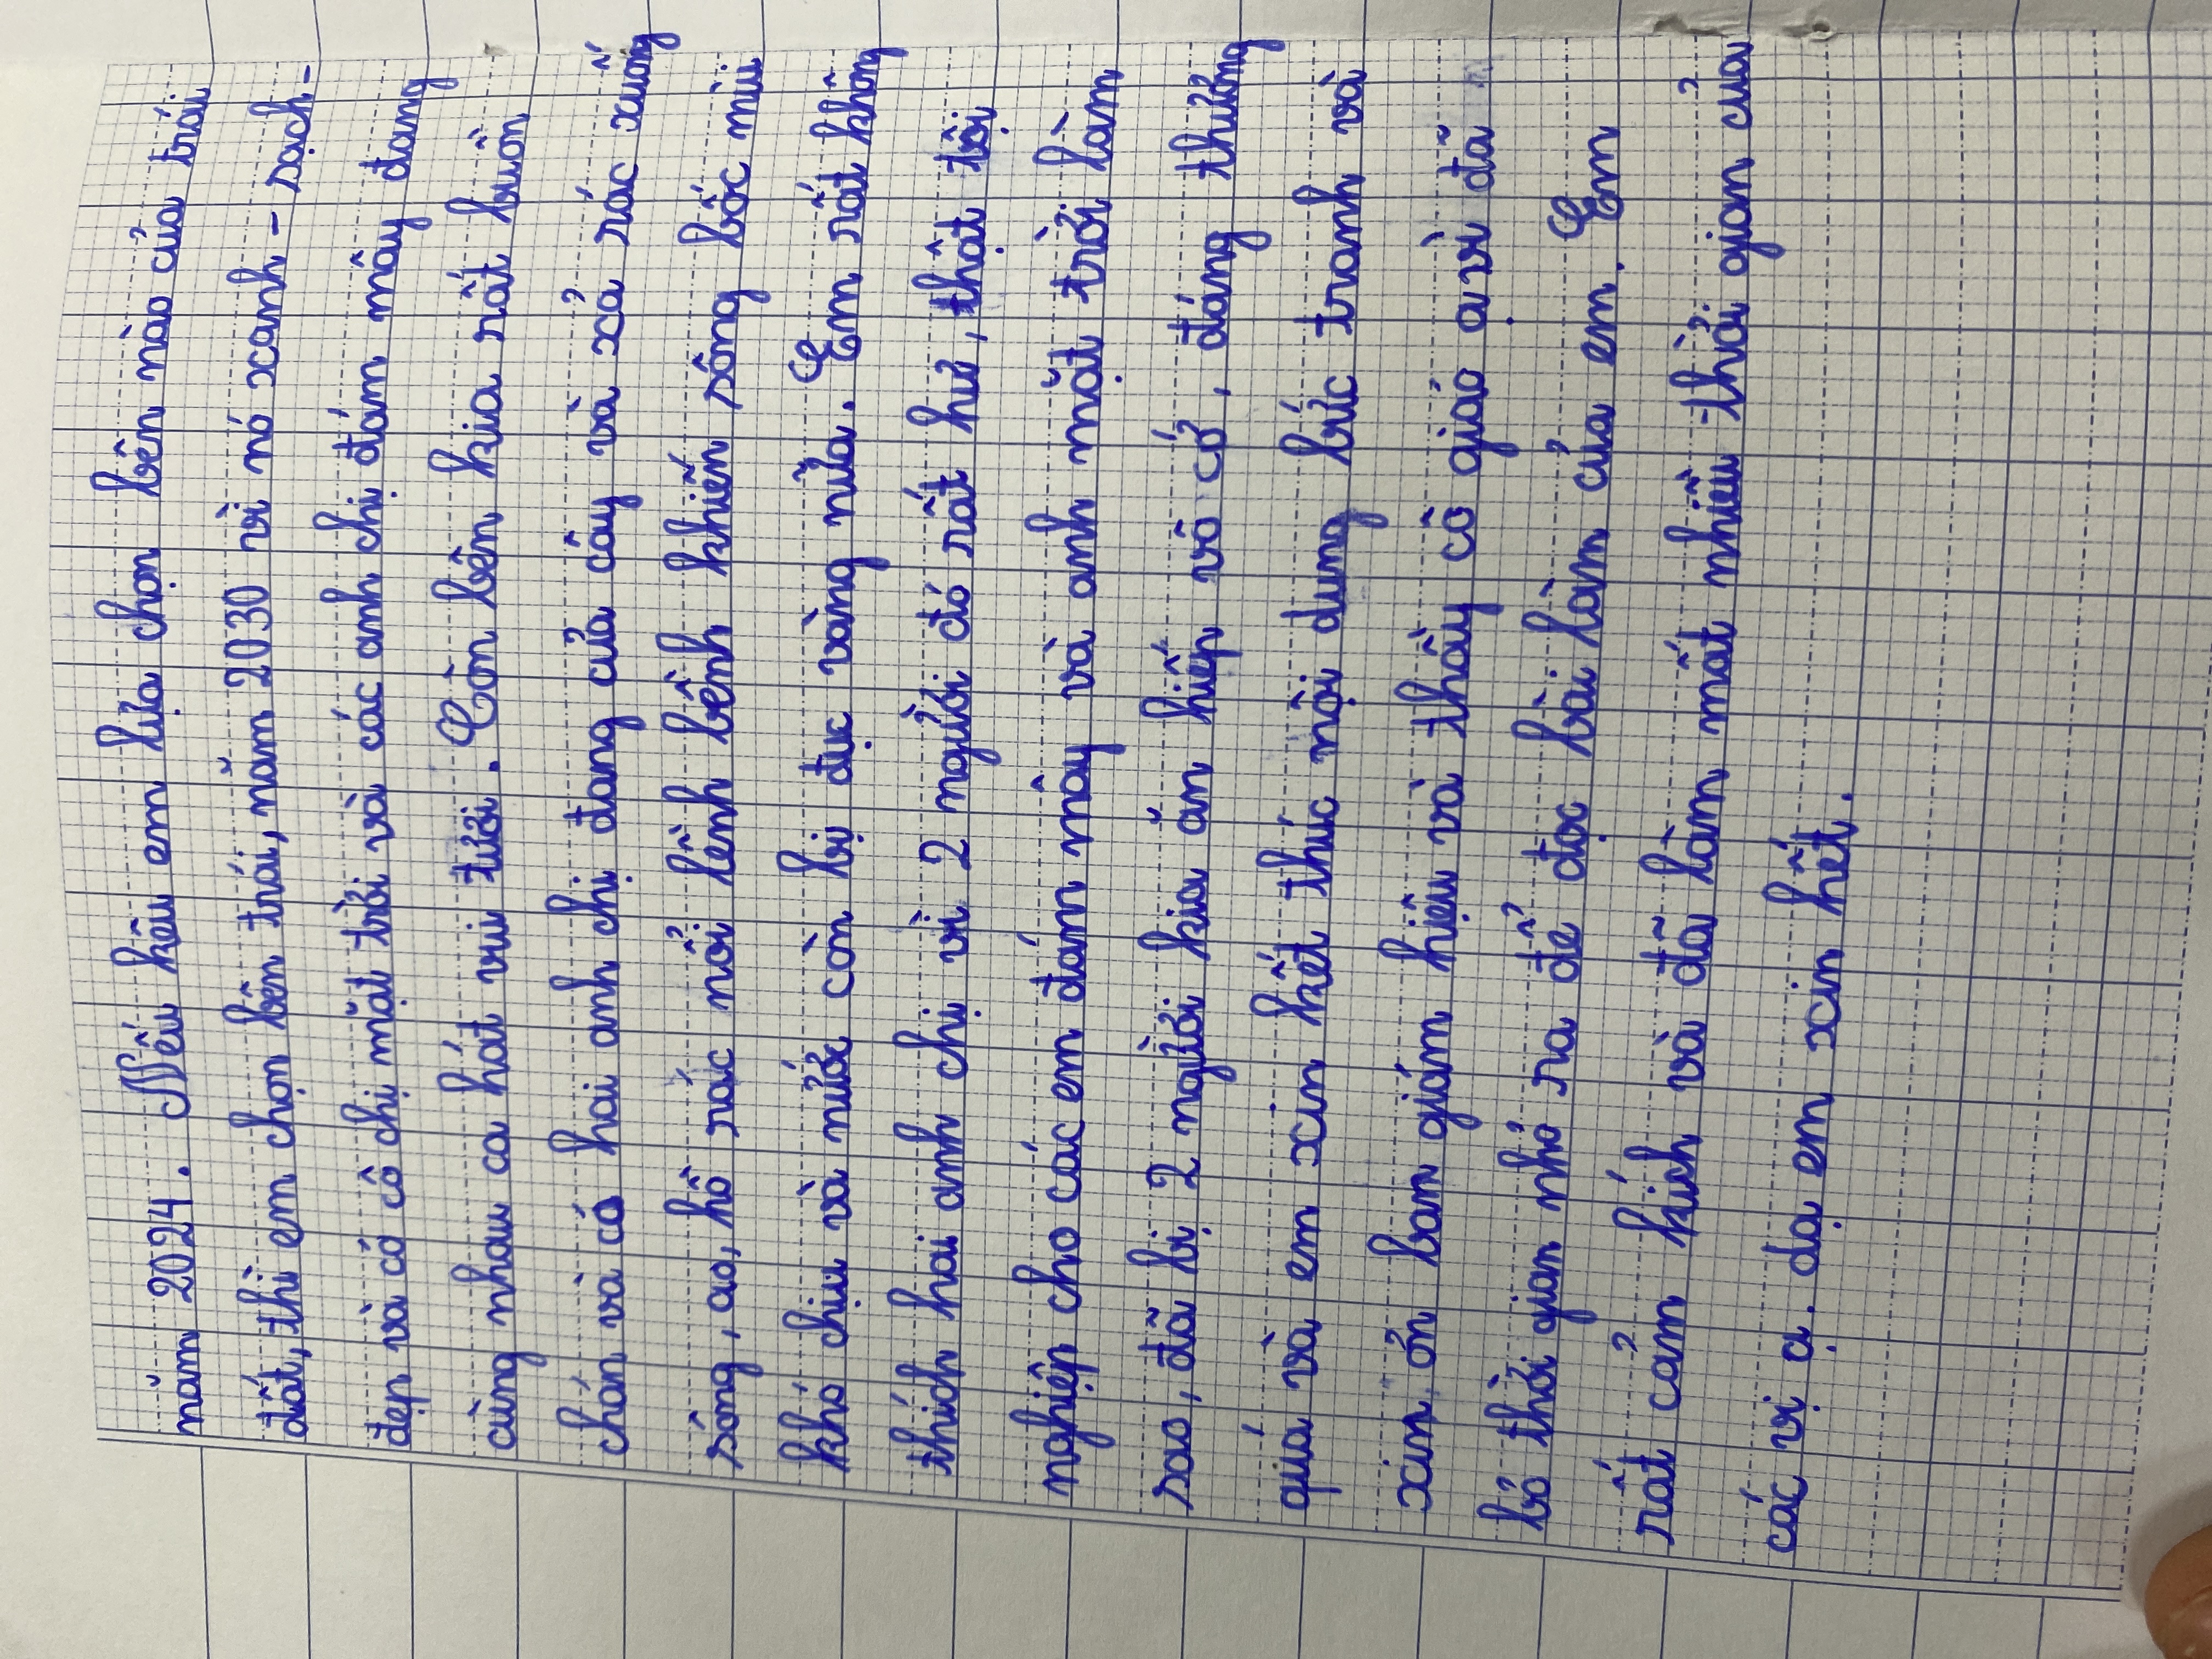 năm 2024. Nếu kêu em lựa chọn bên nào của trái
đất, thì em chọn bên trái, năm 2030 vì nó xanh - sạch -
đẹp và có cô chị mặt trời và các anh chị đám mây đang
cùng nhau ca hát vui tươi. Còn bên kia rất buồn
chán và có hai anh chị đang cưa cây và xả rác xuống
sông, ao, hồ rác nổi lềnh bềnh khiến sông bốc mùi
khó chịu và nước còn bị đục vàng nữa. Em rất không
thích hai anh chị vì 2 người đó rất hư, thật tội
nghiệp cho các em đám mây và anh mặt trời làm
sao, đã bị 2 người kia ăn hiếp vô cớ, đáng thương
quá và em xin kết thúc nội dung bức tranh và
xin ơn ban giám hiệu và thầy cô giáo ạ vì đã
bỏ thời gian nhỏ ra để đọc bài làm của em. Em
rất cảm kích và đã làm mất nhiều thời gian của
các vị ạ. dạ em xin hết.